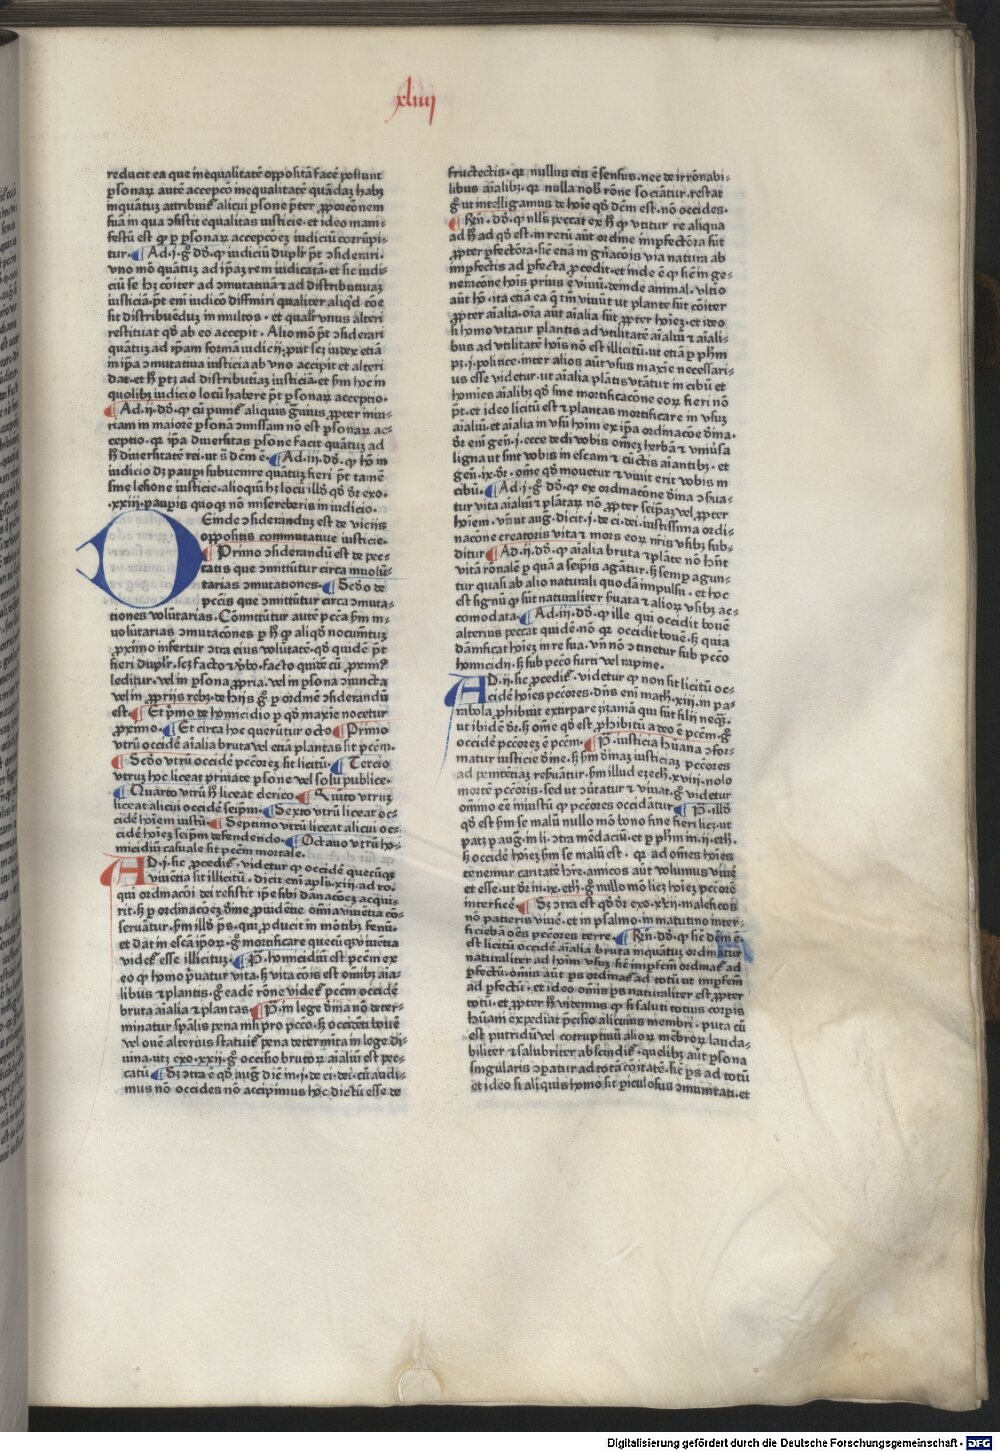 xliiij
reducit ea que inequalitatē opposita facē possunt
ꝑsonaꝝ autē acceptō inequalitatē quādaꝫ habꝫ
inquātuꝫ attribuit᷑ alicui ꝑsone p̄ter ꝓportōnem
suā in qua ↄsistit equalitas iusticie· et ideo mani-
festū est ꝙ ꝑ ꝑsonaꝝ acceptōeꝫ iudiciū corrūpi-
tur· Ad·j·g̊ dō· ꝙ iudiciū duplr̄ pt̄ ↄsiderari·
vno mō quātuꝫ ad ip̄aꝫ rem iudicatā· et sic iudi-
ciū se hꝫ cōiter ad ↄmutatiuā ⁊ ad distributiuaꝫ
iusticiā· pt̄ eni iudicō diffiniri qualiter aliqͥd cōe
sit distribuēduꝫ in multos· et qualr̄ vnus alteri
restituat qd̄ ab eo accepit· Alio mō pt̄ ↄsiderari
quātuꝫ ad ip̄am formā iudicij· ꝓut scꝫ iudex etiā
in ip̄a ↄmutatiua iusticia ab vno accipit et alteri
dat· et h̄ ptꝫ ad distributiuaꝫ iusticiā· et ẜm hoc in
quolibꝫ iudicio locū habere pt̄ ꝑsonaꝝ acceptio·
Ad·ij·dō· ꝙ cū punit᷑ aliquis g̃uius ꝓpter iniu-
riam in maiorē ꝑsonā ↄmissam nō est ꝑsonaꝝ ac-
ceptio· qꝛ ip̄a diuersitas ꝑsone facit quātuꝫ ad
h̄ diuersitatē rei· ut s̄ dc̄m ē· Ad·iij·dō· ꝙ hō in
iudicio dꝫ pauꝑi subuenire quātuꝫ fieri pt̄ tamē
sine lesione iusticie· alioquin hꝫ locū illd̄ qd̄ dr̄ exo·
·xxiij· pauꝑis quoqꝫ nō misereberis in iudicio·
DEinde ↄsideranduꝫ est de viciis
oppositis commutatiue iusticie·
Primo ↄsiderandū est de pec-
catis que ↄmittūtur circa inuolū-
tarias ↄmutationes· Scd̄o de
pctīs que ↄmittūtur circa ↄmuta-
tiones volūtarias· Cōmittūtur autē pctā ẜm in-
voluntarias ↄmutatōnes ꝑ h̄ ꝙ aliqd̄ nocumētuꝫ
ꝓximo infertur ↄtra eius volūtatē· qd̄ quidē pt̄
fieri duplr̄· scꝫ facto ⁊ v̄bo· facto quidē cū ꝓxim᷒
leditur· vel in ꝑsona ꝓpria· vel in ꝑsona ↄiuncta
vel in ꝓprijs rebꝫ· de hijs g̊ ꝑ ordinē ↄsiderandū
est· Et pͥmo de homicidio ꝑ qd̄ maxie nocetur
ꝓximo· Et circa hoc querūtur octo Primo
vtrū occidē aīalia bruta vel etiā plantas sit pctm̄·
Scd̄o vtrū occidē pctōreꝫ sit licitū· Tercio
vtruꝫ hoc liceat priuate ꝑsone vel solū publice·
Quarto vtrū h̄ liceat clerico· Quīto vtruꝫ
liceat alicui occidē seip̄m· Sexto vtrū liceat oc-
cidē hoīem iustū· Septimo vtrū liceat alicui oc-
cidē hoīeꝫ seip̄m defendendo· Octauo vtrū ho-
micidiū casuale sit pctm̄ mortale·
AD·j· sic ꝓcedit᷑· videtur ꝙ occidē quecūqꝫ
viuētia sit illicitū· dicit eni apl̄s·xiij· ad ro·
qui ordinatōni dei resistit ip̄e sibi dānatōeꝫ acqui-
rit· h̄ ꝑ ordinatōeꝫ dīne ꝓuidentie omīa viuentia cō-
seruātur· ẜm illd̄ ps̄· qui ꝓducit in mōtibꝫ fenū·
et dat in escā ip̄oꝝ· g̊ mortificare quecūqꝫ viuētia
videt᷑ esse illicituꝫ· P̄· homicidiū est pctm̄ ex
eo ꝙ homo p̄uatur vita· h̄ vita cōis est omībꝫ aīa-
libus ⁊ plantis· g̊ eadē rōne videt᷑ pctm̄ occidē
bruta aīalia ⁊ plantas P̄· in lege dīna nō deter-
minatur sp̄alis pena nisi pro pctō· h̄ occidēti bouē
vel ouē alterius statuit᷑ pena determīta in lege di-
uina· utꝫ exo·xxij· g̊ occisio brutoꝝ aīaliū est pec-
catū Sꝫ ↄtra ē qd̄ aug᷑ dic̄ in·j· de ci· dei· cū audi-
mus nō occides nō accipimus hoc dictū esse de
fructectis· qꝛ nullus eis ē sensus· nec de irrōnabi-
libus aīalibꝫ· qꝛ nulla nob̄ rōne sociātur· restat
g̊ ut intelligamus de hoīe qd̄ dc̄m est· nō occides·
Rn̄· dō· ꝙ nlls̄ peccat ex h̄ ꝙ vtitur re aliqua
ad h̄ ad qd̄ est· in rerū aūt ordine imꝑfectōra sūt
ꝓpter ꝑfectōra· sic̄ etiā in gn̄atōis via natura ab
imꝑfectis ad ꝑfecta ꝓcedit· et inde ē ꝙ sic̄ in ge-
neratōne hoīs prius ē viuū· deinde animal· vltīo
aūt hō· ita etiā ea q̄ tm̄ viuūt ut plante sūt cōiter
ꝓpter aīalia· oīa aūt aīalia sūt ꝓpter hoīeꝫ· et ideo
si homo vtatur plantis ad vtilitatē aīaliū ⁊ aīali-
bus ad vtilitatē hoīs nō est illicitū· ut etiā ꝑ ph̄m
pꝫ·j· politice· inter alios aūt vsus maxie necessari-
us esse videtur· ut aīalia plātis vtātur in cibū et
homīes aīalibꝫ qd̄ sine mortificatōne eoꝝ fieri nō
pt̄· et ideo licitū est ⁊ plantas mortificare in vsuꝫ
aīaliū· et aīalia in vsū hoīm ex ip̄a ordinatōe dīna·
dr̄ eni gen̄·j· ecce dedi vobis omēꝫ herbā ⁊ vniu̅sa
ligna ut sint vobis in escam ⁊ cūctis aīantibꝫ· et
gen̄·ix· dr̄· ome qd̄ mouetur ⁊ viuit erit vobis in
cibū· Ad·j·g̊ dō· ꝙ ex ordinatōne dīna ↄserua-
tur vita aīaliū ⁊ plātaꝝ nō ꝓpter seip̄aꝫ vel ꝓpter
hoīem· vn̄ ut aug᷑ dicit·j· de ci· dei· iustissima ordi-
natōne creatoris vita ⁊ mors eoꝝ nr̄is vsibꝫ sub-
ditur Ad·ij·dō· ꝙ aīalia bruta ⁊ plāte nō hn̄t
vitā rōnalē ꝑ quā a seip̄is agātur· h̄ semꝑ agun-
tur quasi ab alio naturali quodā impulsu· et hoc
est signū ꝙ sūt naturaliter s̄uata ⁊ alioꝝ vsibꝫ ac-
comodata· Ad·iij·dō· ꝙ ille qui occidit bouē
alterius peccat quidē· nō qꝛ occidit bouē· h̄ quia
dānificat hoīeꝫ in re sua· vn̄ nō ↄtinetur sub pctō
homicidij· h̄ sub pctō furti vel rapine·
AD·ij· sic ꝓcedit᷑· videtur ꝙ non sit licitū oc-
cidē hoīes pctōres· dn̄s eni math·xiij· in pa-
rabola ꝓhibuit extirpare zizaniā qui sūt filij neqͣꝫ·
ut ibidē dr̄· h̄ ome qd̄ est ꝓhibitū a deo ē pctm̄· g̊
occidē pctōreꝫ ē pctm̄· P̄· iusticia hūana ↄfor-
matur iusticie dīne· h̄ ẜm dīnaꝫ iusticiaꝫ pctōres
ad penitētiaꝫ res̄uātur· ẜm illud ezech·xviij· nolo
mortē pctōris· sed ut ↄuertatur ⁊ viuat· g̊ videtur
omīno eē iniustū ꝙ pctōres occidātur P̄· illd̄
qd̄ est ẜm se malū nullo mō bono fine fieri licꝫ· ut
patꝫ ꝑ aug᷑· in li· ↄtra mēdaciū· et ꝑ ph̄m in·ij· eth·
h̄ occidē hoīeꝫ ẜm se malū est· qꝛ ad omēs hoīes
tenemur caritatē hr̄e· amicos aūt volumus viuē
et esse· ut dr̄ in·ix· eth· g̊ nullo mō licꝫ hoīeꝫ pctōrē
interficē Sꝫ ↄtra est qd̄ dr̄ exo·xxij· maleficos
nō patieris viuē· et in psalmo· in matutino inter-
ficiebā oēs pctōres terre· Rn̄· dō· ꝙ sic̄ dc̄m ē
est licitū occidē aīalia bruta inquātuꝫ ordinātur
naturaliter ad hoīm vsuꝫ· sic̄ imꝑfcm̄ ordinat᷑ ad
ꝑfectū· omīs aūt ps̄ ordinat᷑ ad totū ut imꝑfcm̄
ad ꝑfectū· et ideo omīs ps̄ naturaliter est ꝓpter
totū· et ꝓpter h̄ videmus ꝙ si saluti totius corꝑis
hūani expediat p̄cisio alicuius membri· puta cū
est putridū vel corruptiuū alioꝝ mēbroꝝ lauda-
biliter ⁊ salubriter abscindit᷑· quelibꝫ aūt ꝑsona
singularis ↄparatur ad totā cōitatē· sic̄ ps̄ ad totū
et ideo si aliquis homo sit ꝑiculosus ↄmunitati· et
Digitalisierung gefördert durch die Deutsche Forschungsgemeinschaft - DFG